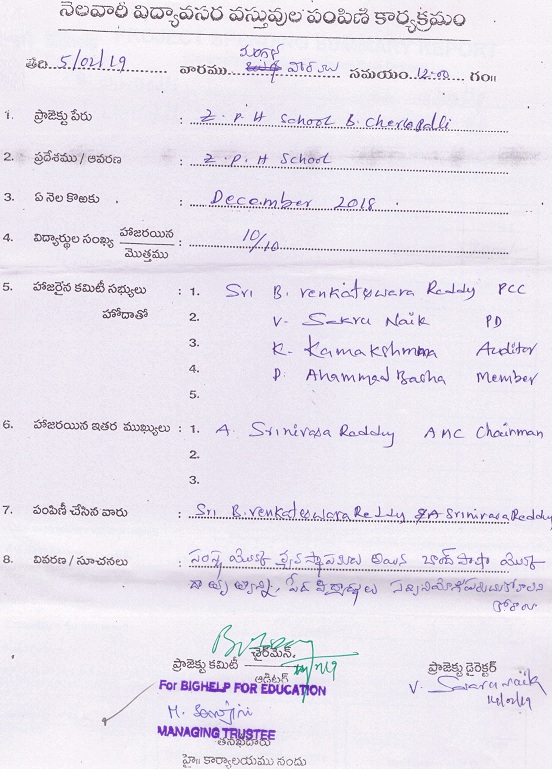 నెలవారీ విద్యావసర వస్తువుల పంపిణి కార్యక్రమం
తేది 5/02/19 వారము మంగళ వారము సమయం 12:00 గం॥
1. ప్రాజెక్టు పేరు : Z.P.H School B.Cherlopalli
2. ప్రదేశము / ఆవరణ : Z.P.H School
3. ఏ నెల కొఱకు : December 2018
4. విద్యార్థుల సంఖ్య హాజరయిన : 10/10
మొత్తము
5. హాజరైన కమిటీ సభ్యులు : 1. Sri B. Venkateswara Reddy PCC
హోదాతో 2. V. Sakru Naik PD
3. K. Kamakshmma Auditor
4. D. Ahammad Basha Member
5.
6. హాజరయిన ఇతర ముఖ్యులు : 1. A. Srinivasa Reddy AMC Chairman
2.
3.
7. పంపిణీ చేసిన వారు : Sri B.Venkateswara Reddy & A Srinivasa Reddy
8. వివరణ / సూచనలు : సంస్థ యొక్క వ్యవస్థాపకులు అయిన చాంద్ పాషా యొక్క
పేద విద్యార్థులు సద్వినియోగపరుచుకోవాలని
కోరారు
చైర్‌మేన్,
ప్రాజెక్టు కమిటీ ప్రాజెక్టు డైరెక్టర్
ఆడిటర్ V. Sakru naik
For BIGHELP FOR EDUCATION 14/02/19
MANAGING TRUSTEE
తనిఖీదారు
హై॥ కార్యాలయము నందు